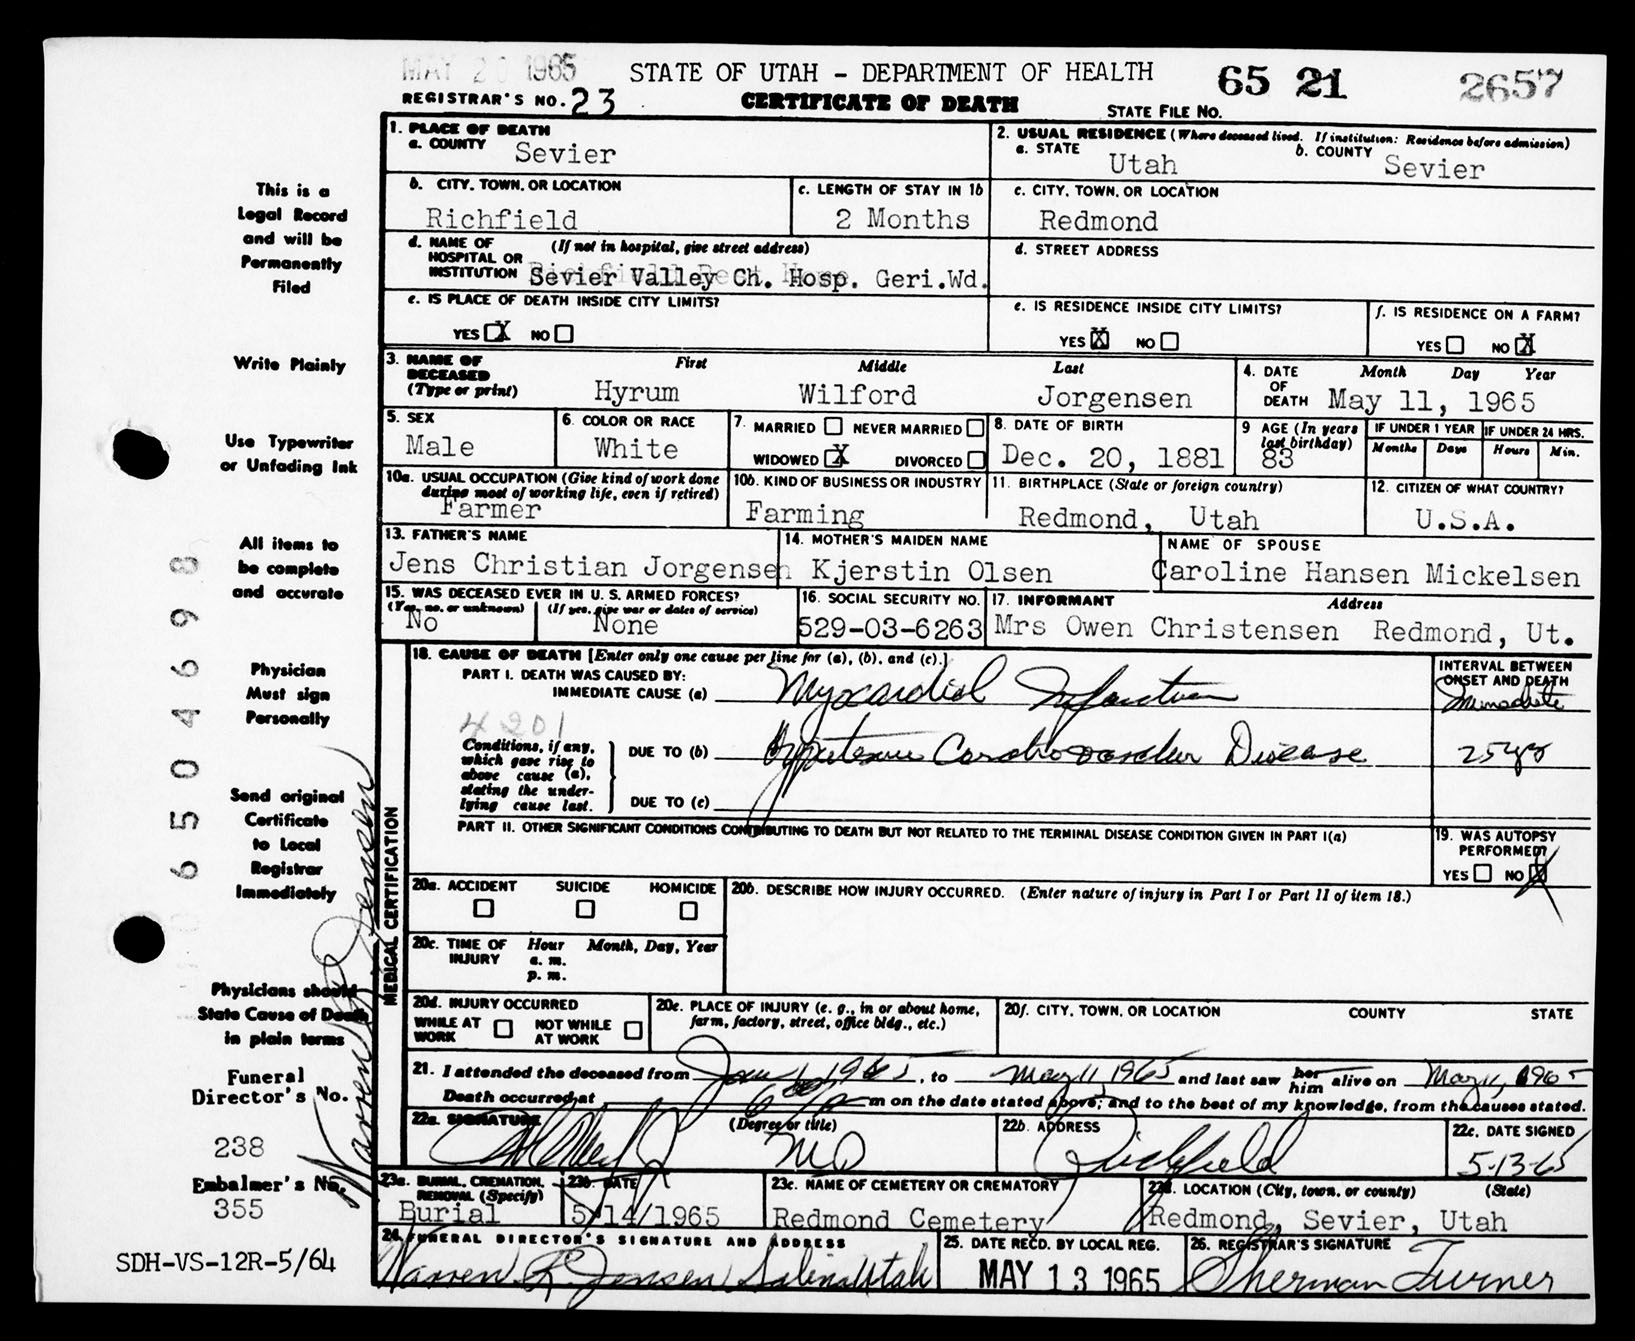 MAY 20 1965
STATE OF UTAH - DEPARTMENT OF HEALTH
65 21 2657
REGISTRAR'S NO. 23
CERTIFICATE OF DEATH
STATE FILE NO.
1. PLACE OF DEATH
a. COUNTY Sevier
2. USUAL RESIDENCE (Where deceased lived. If institution: Residence before admission)
a. STATE Utah b. COUNTY Sevier
b. CITY, TOWN, OR LOCATION Richfield
c. LENGTH OF STAY IN 1b 2 Months
c. CITY, TOWN, OR LOCATION Redmond
d. NAME OF HOSPITAL OR INSTITUTION (If not in hospital, give street address)
Sevier Valley Ch. Hosp. Geri.Wd.
d. STREET ADDRESS
e. IS PLACE OF DEATH INSIDE CITY LIMITS?
YES X NO
e. IS RESIDENCE INSIDE CITY LIMITS?
YES X NO
f. IS RESIDENCE ON A FARM?
YES NO X
3. NAME OF DECEASED (Type or print)
First Middle Last
Hyrum Wilford Jorgensen
4. DATE OF DEATH Month Day Year
May 11, 1965
5. SEX Male
6. COLOR OR RACE White
7. MARRIED NEVER MARRIED
WIDOWED X DIVORCED
8. DATE OF BIRTH Dec. 20, 1881
9 AGE (In years last birthday) 83
IF UNDER 1 YEAR Months Days
IF UNDER 24 HRS. Hours Min.
10a. USUAL OCCUPATION (Give kind of work done during most of working life, even if retired)
Farmer
10b. KIND OF BUSINESS OR INDUSTRY
Farming
11. BIRTHPLACE (State or foreign country)
Redmond, Utah
12. CITIZEN OF WHAT COUNTRY?
U.S.A.
13. FATHER'S NAME
Jens Christian Jorgensen
14. MOTHER'S MAIDEN NAME
Kjerstin Olsen
NAME OF SPOUSE
Caroline Hansen Mickelsen
15. WAS DECEASED EVER IN U.S. ARMED FORCES?
(Yes, no, or unknown) (If yes, give war or dates of service)
No None
16. SOCIAL SECURITY NO.
529-03-6263
17. INFORMANT Address
Mrs Owen Christensen Redmond, Ut.
18. CAUSE OF DEATH [Enter only one cause per line for (a), (b), and (c).]
PART I. DEATH WAS CAUSED BY:
IMMEDIATE CAUSE (a) Myocardial Infarction
INTERVAL BETWEEN ONSET AND DEATH
Immediate
4201
Conditions, if any, which gave rise to above cause (a), stating the underlying cause last.
DUE TO (b) Hypertensive Cardiovascular Disease
25 yrs
DUE TO (c)
PART II. OTHER SIGNIFICANT CONDITIONS CONTRIBUTING TO DEATH BUT NOT RELATED TO THE TERMINAL DISEASE CONDITION GIVEN IN PART I(a)
19. WAS AUTOPSY PERFORMED?
YES NO X
MEDICAL CERTIFICATION
20a. ACCIDENT SUICIDE HOMICIDE
20b. DESCRIBE HOW INJURY OCCURRED. (Enter nature of injury in Part I or Part II of item 18.)
20c. TIME OF INJURY Hour Month, Day, Year
a. m.
p. m.
20d. INJURY OCCURRED
WHILE AT WORK NOT WHILE AT WORK
20e. PLACE OF INJURY (e. g., in or about home, farm, factory, street, office bldg., etc.)
20f. CITY, TOWN, OR LOCATION COUNTY STATE
21. I attended the deceased from Jan 1, 1965, to May 11, 1965 and last saw her him alive on May 11, 1965
Death occurred at 6 m on the date stated above; and to the best of my knowledge, from the causes stated.
22a. SIGNATURE (Degree or title)
MD
22b. ADDRESS
Richfield
22c. DATE SIGNED
5-13-65
23a. BURIAL, CREMATION, REMOVAL (Specify)
Burial
23b. DATE
5/14/1965
23c. NAME OF CEMETERY OR CREMATORY
Redmond Cemetery
23d. LOCATION (City, town, or county) (State)
Redmond, Sevier, Utah
24. FUNERAL DIRECTOR'S SIGNATURE AND ADDRESS
Warren L. Jensen Salina Utah
25. DATE RECD. BY LOCAL REG.
MAY 13 1965
26. REGISTRAR'S SIGNATURE
Sherman Turner
This is a
Legal Record
and will be
Permanently
Filed
Write Plainly
Use Typewriter
or Unfading Ink
All items to
be complete
and accurate
Physician
Must sign
Personally
Send original
Certificate
to Local
Registrar
Immediately
Physicians should
State Cause of Death
in plain terms
Funeral
Director's No.
238
Embalmer's No.
355
SDH-VS-12R-5/64
6504698
Warren L Jensen